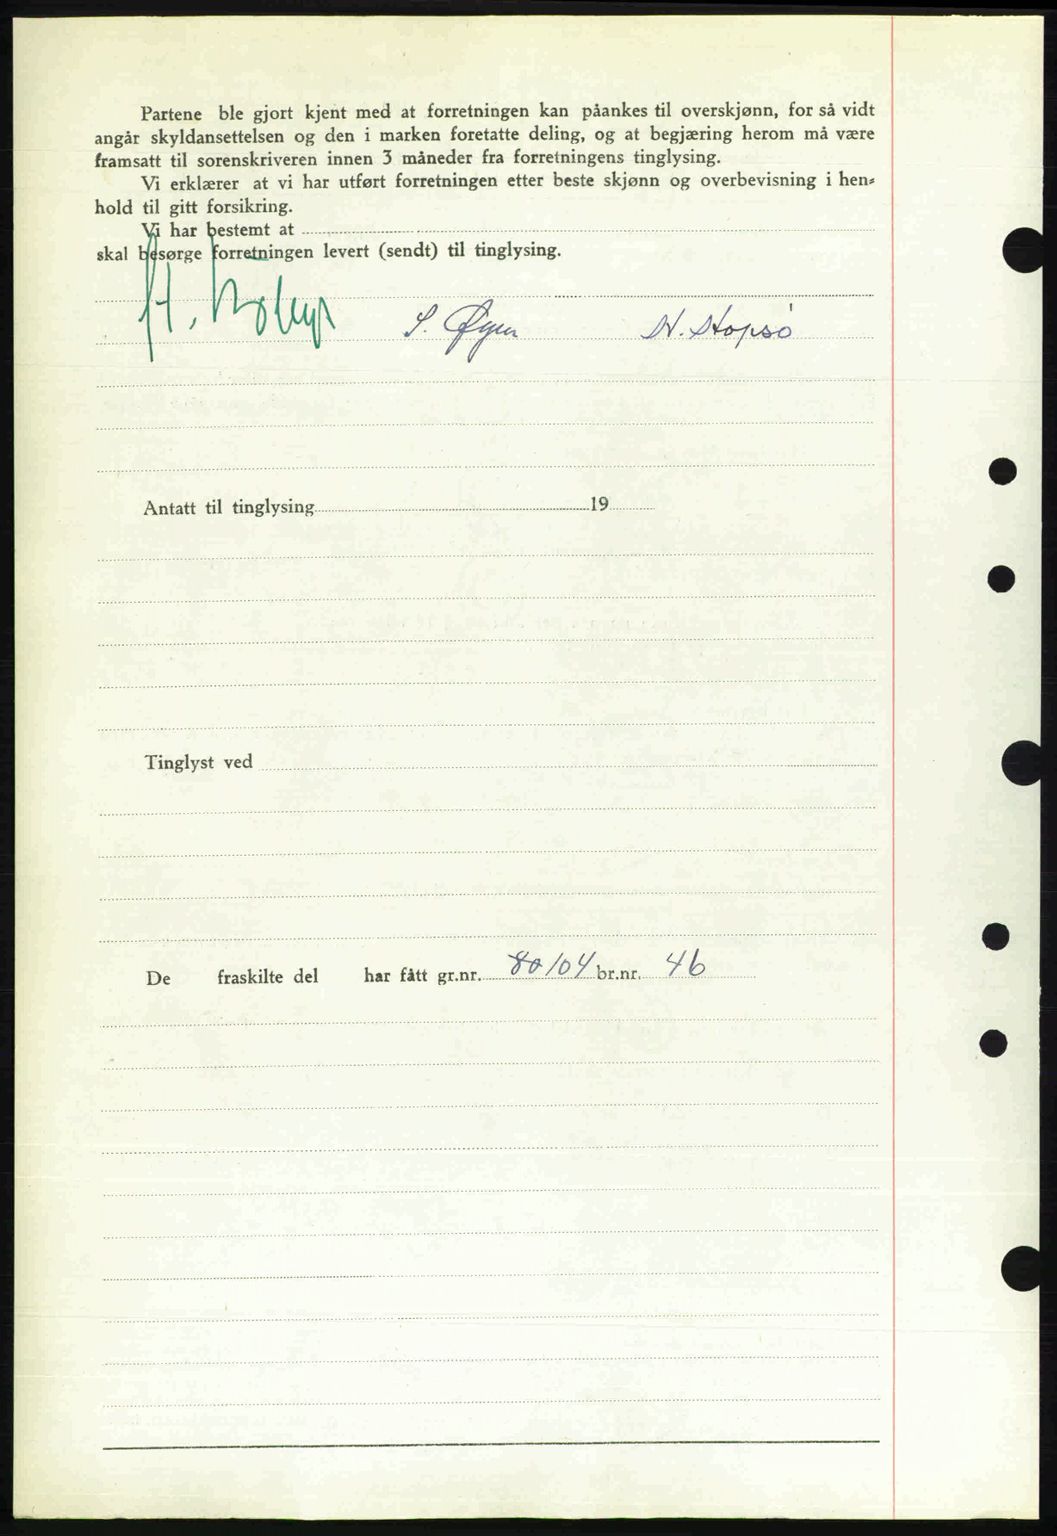 Partene ble gjort kjent med at forretningen kan påankes til overskjønn, for så vidt
angår skyldansettelsen og den i marken foretatte deling, og at begjæring herom må være
framsatt til sorenskriveren innen 3 måneder fra forretningens tinglysing.
Vi erklærer at vi har utført forretningen etter beste skjønn og overbevisning i hen-
hold til gitt forsikring.
Vi har bestemt at
skal besørge forretningen levert (sendt) til tinglysing.
H. S. Øyen N. Stopsø
Antatt til tinglysing 19
Tinglyst ved
De fraskilte del har fått gr.nr. 80/04 br.nr. 46